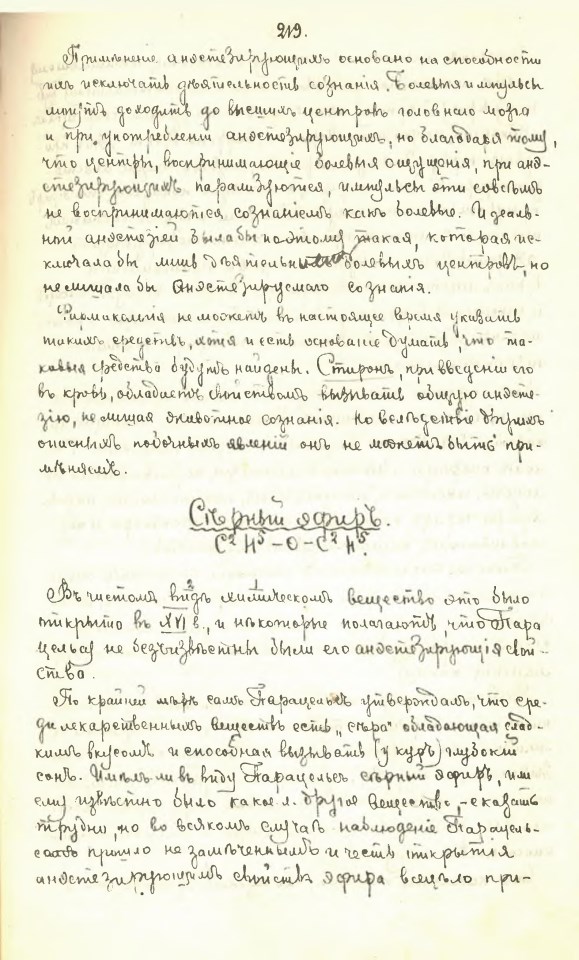 219.
Примѣненіе анэстезирующихъ основано на способности
ихъ исключать дѣятельность сознанія. Болевыя импульсы
могутъ доходить до высшихъ центровъ головнаго мозга
и при употребленіи анэстезирующихъ, но благодаря тому,
что центры, воспринимающіе болевыя ощущенія, при анэ-
стезирующихъ парализуются, импульсы эти совсѣмъ
не воспринимаются сознаніемъ какъ болевые. Идеаль-
ной анэстезіей была бы поэтому такая, которая ис-
ключала бы лишь дѣятельность болевыхъ центровъ, но
не лишала бы анэстезируемаго сознанія.
Фармакологія не можетъ въ настоящее время указать
такихъ средствъ, хотя и есть основаніе думать, что та-
ковыя средства будутъ найдены. Стиронъ, при введеніи его
въ кровь, обладаетъ свойствомъ вызывать общую анэсте-
зію, не лишая животное сознанія. Но вслѣдствіе другихъ
опасныхъ побочныхъ явленій онъ не можетъ быть при-
мѣняемъ.
Сѣрный эфиръ.
C² H⁵ – O – C² H⁵.
Въ чистомъ видѣ 2 химическомъ 1 вещество это было
открыто въ XVI в., и нѣкоторые полагаютъ, что Пара
цельсу не безъизвѣстны были его анэстезирующія свой-
ства.
По крайней мѣрѣ самъ Парацельсъ утверждалъ, что сре-
ди лекарственныхъ веществъ есть „сѣра" обладающая слад-
кимъ вкусомъ и способная вызывать (у куръ) глубокій
сонъ. Имѣлъ ли въ виду Парацельсъ сѣрный эфиръ, или
ему извѣстно было какое л. другое вещество, – сказать
трудно, но во всякомъ случаѣ наблюденіе Парацель-
са прошло не замѣченнымъ и честь открытія
анэстезирующихъ свойствъ эфира всецѣло при-